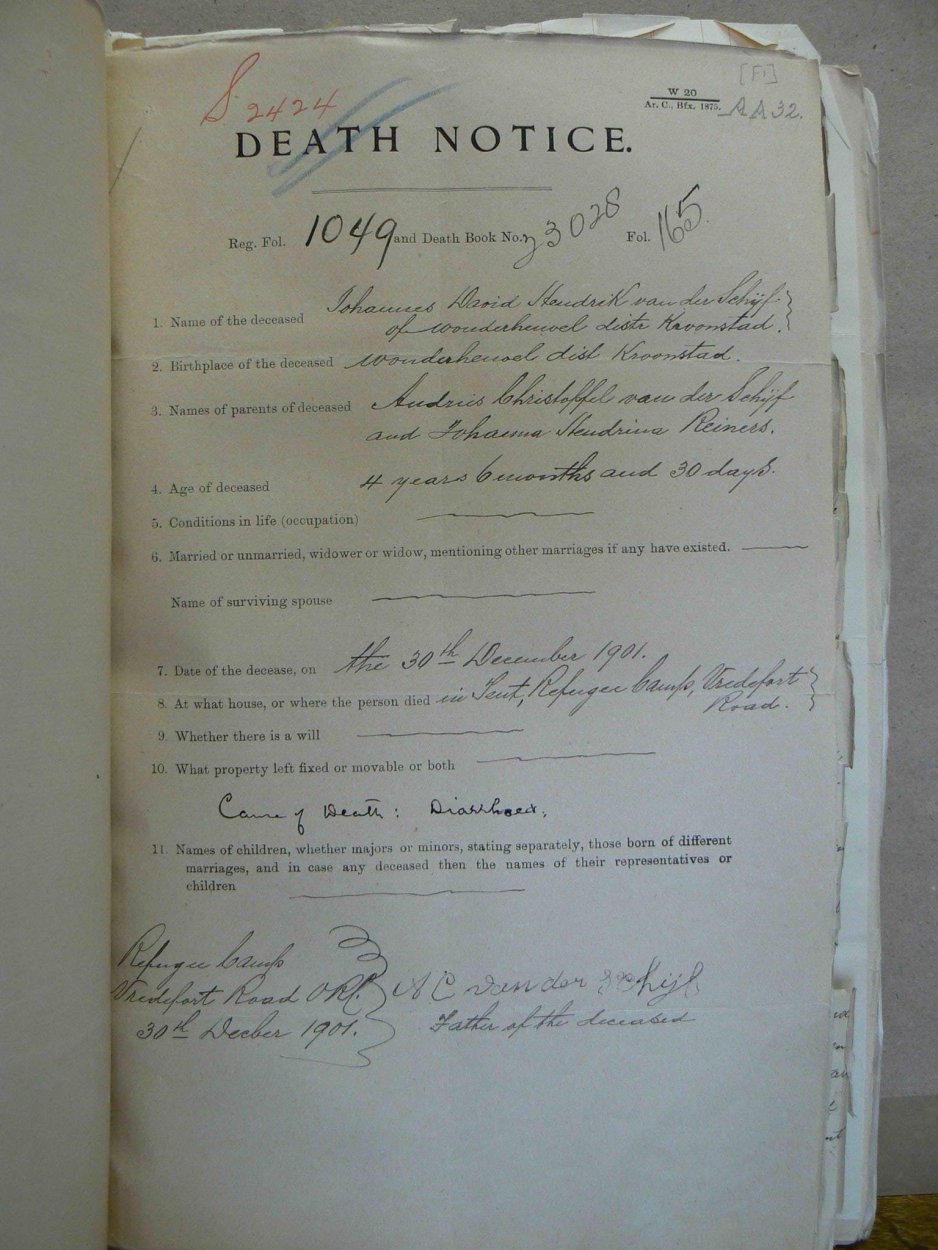 S. 2424
[F1]
W 20
Ar. C., Bfx. 1875.
AA 32.
DEATH NOTICE.
Reg. Fol. 1049 and Death Book No. 3028 Fol. 165.
1. Name of the deceased Johannes David Hendrik van der Schijf
of wonderheuvel distr Kroonstad.
2. Birthplace of the deceased wonderheuvel dist Kroonstad.
3. Names of parents of deceased Andries Christoffel van der Schijf
and Johanna Hendrina Reiners.
4. Age of deceased 4 years 6 months and 30 days.
5. Conditions in life (occupation)
6. Married or unmarried, widower or widow, mentioning other marriages if any have existed.
Name of surviving spouse
7. Date of the decease, on the 30th December 1901.
8. At what house, or where the person died in Tent, Refugee Camp, Vredefort
Road.
9. Whether there is a will
10. What property left fixed or movable or both
Cause of Death: Diarrhoea.
11. Names of children, whether majors or minors, stating separately, those born of different
marriages, and in case any deceased then the names of their representatives or
children
Refugee Camp
Vredefort Road ORC.
30th Decber 1901.
A C van der Schijf
Father of the deceased